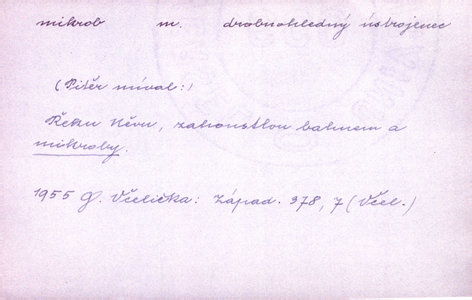 mikrob m. drobnohledný ústrojenec
(Pitěr míval:)
Řeku Něvu, zahoustlou bahnem a
mikroby.
1955 G. Včelička: Západ. 378, 7 (Včel.)